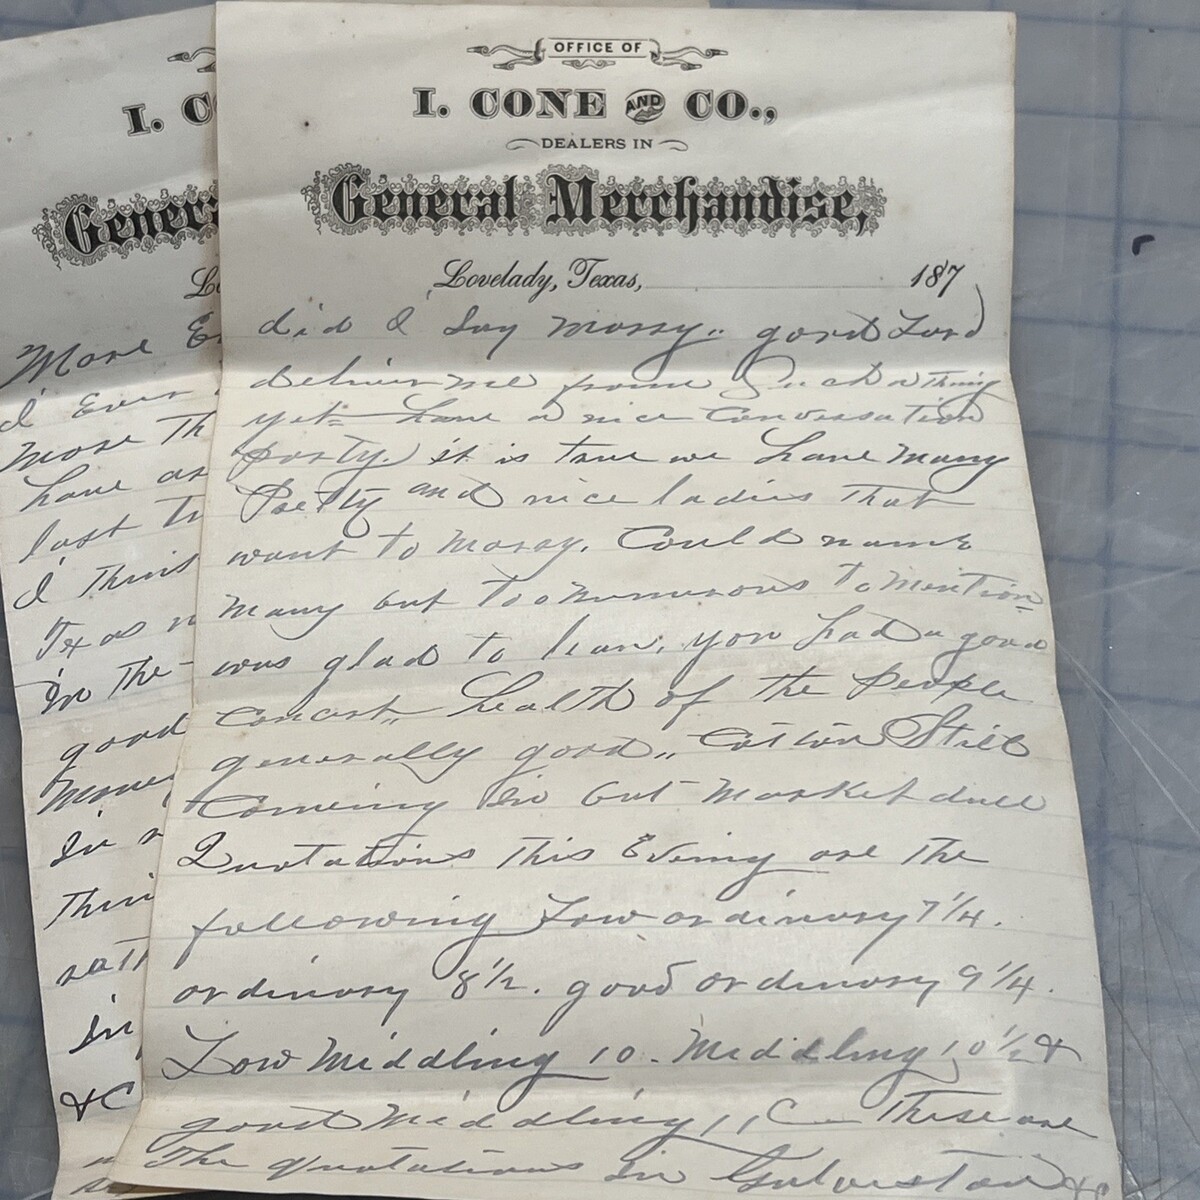 OFFICE OF
I. CONE AND CO.,
DEALERS IN
General Merchandise,
Lovelady, Texas, 187
did I Say marry,, good Lord
deliver me from Such a thing
yet= have a nice Conversation
party. it is true we have many
Pretty and nice ladies that
want to marry. Could name
many but too numerous to mention
was glad to learn, you had a good
Concert,, health of the People
generally good,, Cotton Still
Comeing in but market dull
Quotations this Evening are the
following Low ordinary 7 1/4.
ordinary 8 1/2. good ordinary 9 1/4.
Low Middling 10 - Middling 10 1/2 &
good Middling 11 C — These are
The quotations in Galveston &c
I. C
Genera
Lo
More E
I Ever
more Th
have a
last tr
I Think
Texas
in the
good
money
In
Thin
rath
in
&C